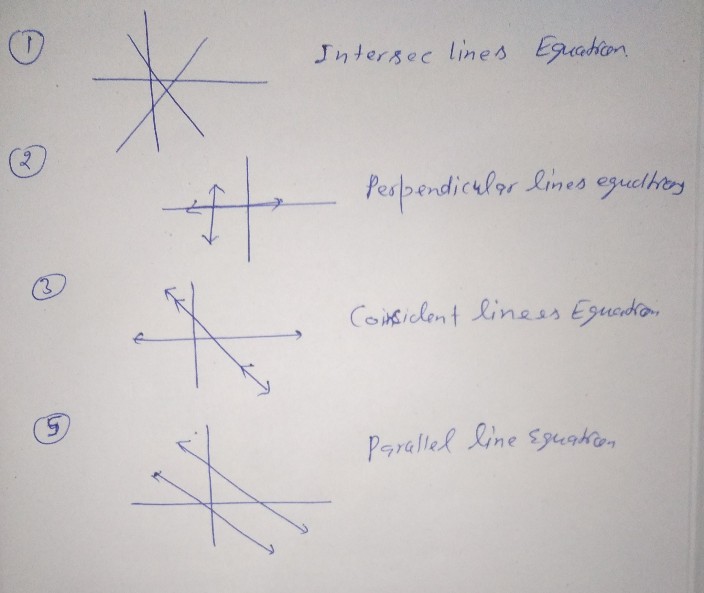 1 Intersec lines Equation.
2 Perpendicular lines equations
3 Coinsident linees Equation
5 Parallel line Equation